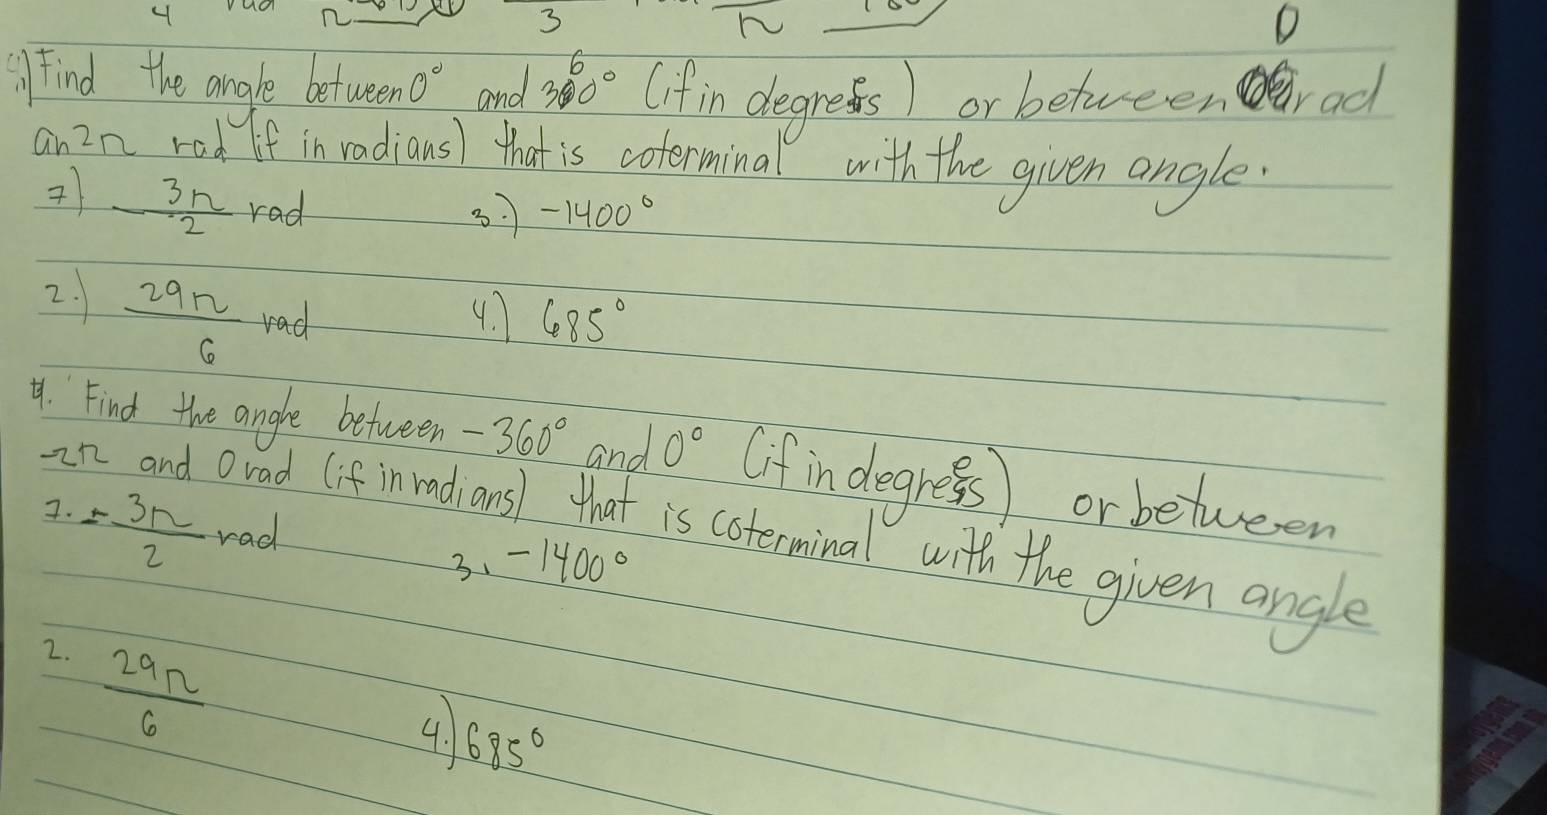 4 rad n 3 n
3.) Find the angle between 0° and 360° (if in degrees) or between 0 rad
an 2π rad (if in radians) that is coterminal with the given angle.
1) -3π/2 rad 3.) -1400°
2.) 29π/6 rad 4.) 685°
4. Find the angle between -360° and 0° (if in degrees) or between
-2π and 0 rad (if in radians) that is coterminal with the given angle
1. -3π/2 rad 3. -1400°
2. 29π/6 4.) 685°